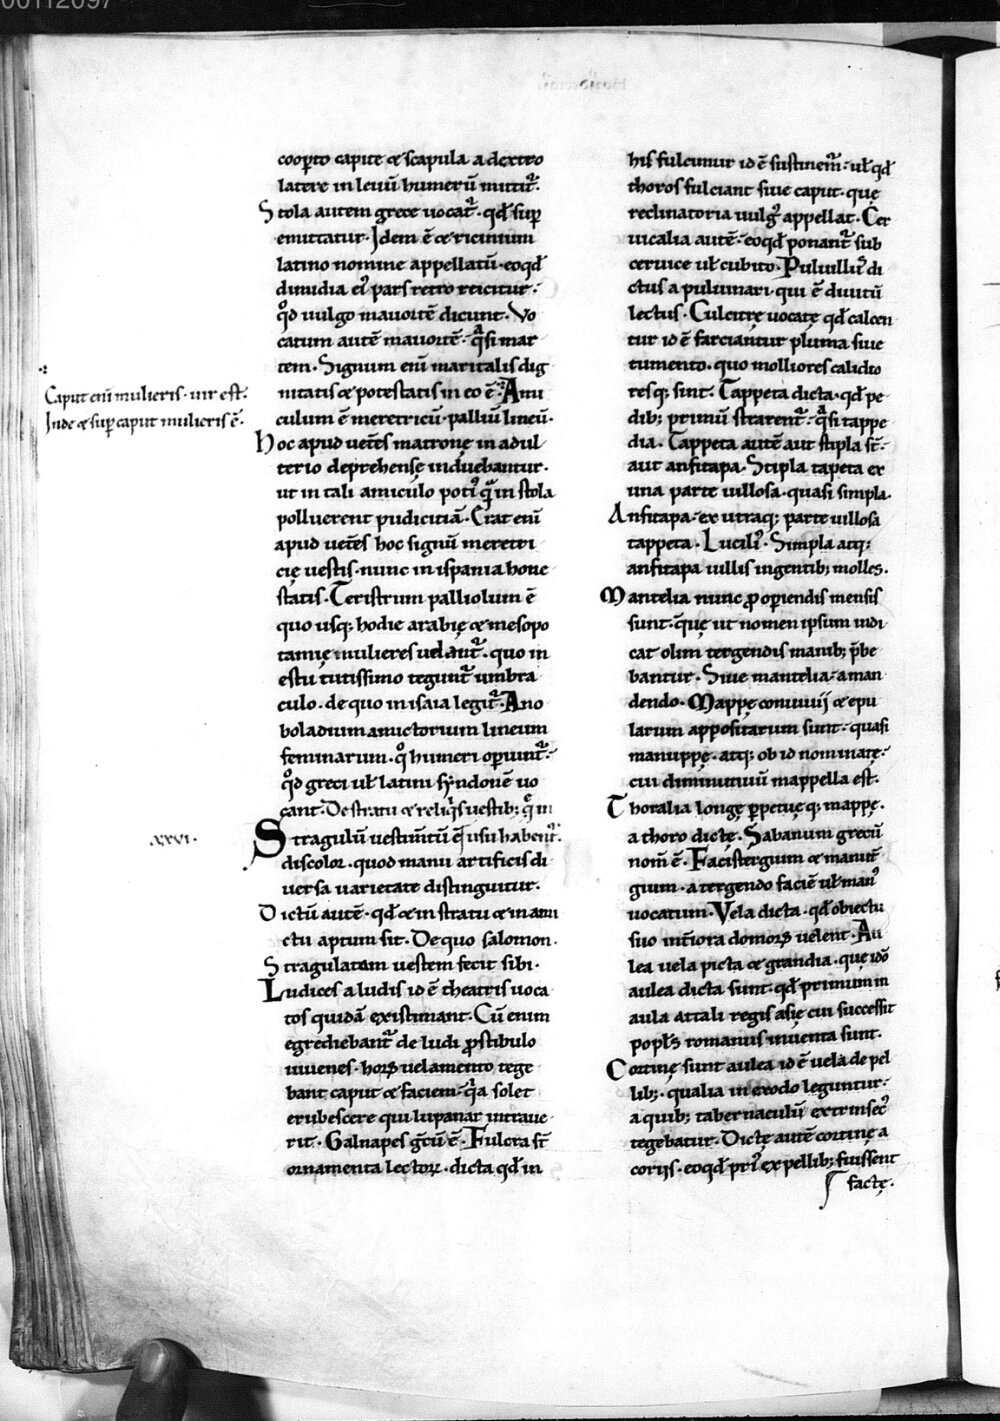 00112697
cooꝑto capite ⁊ scapula a dextro
latere in leuū humerū mittit᷑.
Stola autem grece uocat᷑. qđ suꝑ
emittatur. Idem ē ⁊ ricinium
latino nomine appellatū. eoqđ
dimidia ei᷒ pars retro reicitur.
qͦd uulgo mauortē dicunt. Vo
catum autē mauortē. qͣsi mar
tem. Signum eni maritalis dig
nitatis ⁊ potestatis in eo ē. Ami
culum ē meretricū. palliū lineū.
Hoc apud uetes̄ matronę in adul
terio deprehensę induebantur.
ut in tali amiculo poti᷒ qͣ in stola
polluerent pudicitiā. Erat enī
apud uetes̄ hoc signū meretri
cię uestis. nunc in ispania hone
statis. Teristrum palliolum ē
quo usq; hodie arabię ⁊ mesopo
tamię mulieres uelant᷑. quo in
estu tutissimo tegunt᷑ umbra
culo. de quo in isaia legit᷑. Ano
boladium amictorium lineum
feminarum. qͦ humeri oꝑiunt᷑.
qͦd greci ul̄ latini syndonē uo
cant. De stratu ⁊ reliqͥs uestib; qͤ in
Stragulū uestimtū ē usu habent᷑.
discolor. quod manu artificis di
uersa uarietate distinguitur.
Dictū autē. qđ ⁊ in stratu ⁊ in ami
ctu aptum sit. De quo salomon.
Stragulatam uestem fecit sibi.
Ludices a ludis id ē theatris uoca
tos quidā existimant. Cū enim
egrediebant᷑ de ludi ꝓstibulo
iuuenes. hoꝝ uelamento tege
bant caput ⁊ faciem. qͥa solet
erubescere qui lupanar intraue
rit. Galnapes gc̄ū ē. Fulcra st̄
ornamenta lectoꝝ. dicta qđ in
Caput enī mulieris. uir est.
Inde ⁊ suꝑ caput mulieris ē.
.xxvi.
his fulcimur id ē sustinem᷑. ul̄ qđ
thoros fulciant siue caput. quę
reclinatoria uulg᷒ appellat. Cer
uicalia autē. eoqđ ponant᷑ sub
ceruice ul̄ cubito. Puluillu᷒ di
ctus a puluinari. qui ē diuitū
lectus. Culcitrę uocatę qđ calcen
tur id ē farciantur pluma siue
tumento. quo molliores calidio
resq; sint. Tappeta dicta. qđ pe
dib; primū strarent᷑. qͣsi tappe
dia. Tappeta autē aut sipla st̄.
aut anfitapa. Sipla tapeta ex
una parte uillosa. quasi simpla.
Anfitapa. ex utraq; parte uillosa
tappeta. Lucili᷒. Simpla atq;
anfitapa uillis ingentib; molles.
Mantelia nunc ꝓ oꝑiendis mensis
sunt. quę ut nomen ipsum indi
cat olim tergendis manib; p̄be
bantur. Siue mantelia. a man
dendo. Mappę conuiuij ⁊ epu
larum appositarum sunt. quasi
manuppę. atq; ob id nominatę.
cui diminutiuū mappella est.
Thoralia longę ꝑpetuęq; mappę.
a thoro dictę. Sabanum grecū
nom̄ ē. Facistergium ⁊ manut̄
gium. a tergendo faciē ul̄ man᷒
uocatum. Vela dicta. qđ obiectu
suo int̄iora domoꝝ uelent. Au
lea uela picta ⁊ grandia. que iđo
aulea dicta sunt. qđ primum in
aula attali regis asię cui successit
popl̄s romanus inuenta sunt.
Cortinę sunt aulea id ē uela de pel
lib;. qualia in exodo leguntur.
a quib; tabernaculū extrinsec᷒
tegebatur. Dictę autē cortinę a
corijs. eoqđ pri᷒ ex pellib; fuissent
factę.